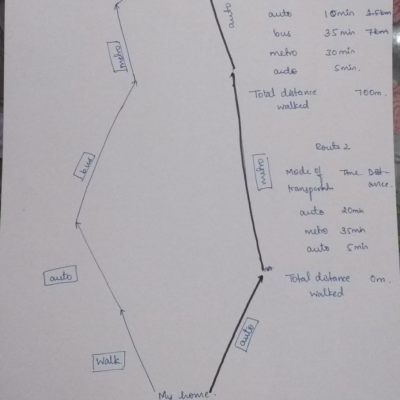 auto
auto 10min 1.5km
bus 35 min 7km
metro 30min
auto 5min.
Total distance 700m.
walked
metro
Route 2
bus
metro
Mode of Time Dist-
transportation ance.
auto 20min
metro 35min
auto 5min
auto
Total distance 0m.
walked
auto
Walk
My home.